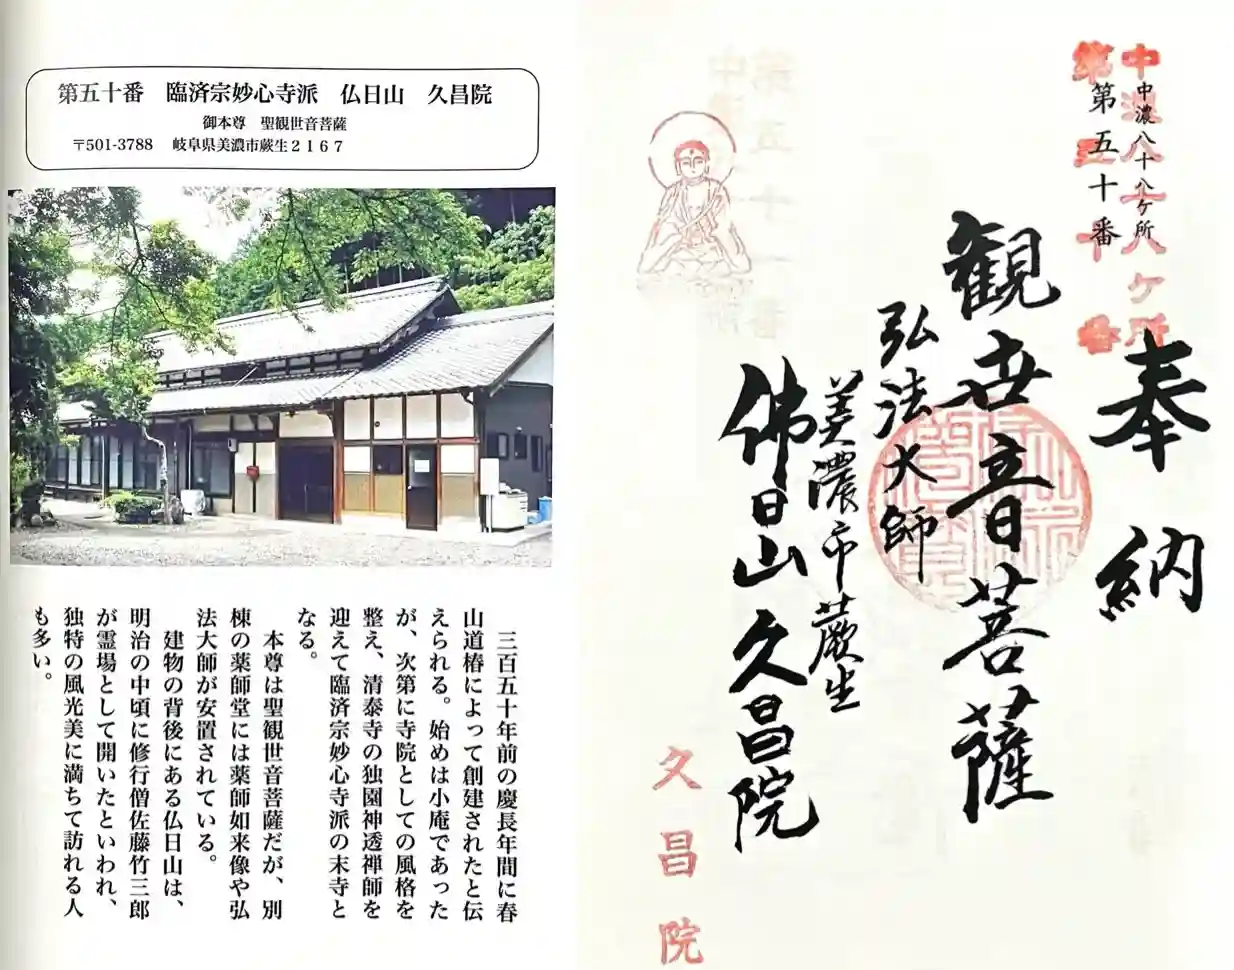 第五十番　臨済宗妙心寺派　仏日山　久昌院
御本尊　聖観世音菩薩
〒501-3788　岐阜県美濃市蕨生２１６７
三百五十年前の慶長年間に春
山道椿によって創建されたと伝
えられる。始めは小庵であった
が、次第に寺院としての風格を
整え、清泰寺の独園神透禅師を
迎えて臨済宗妙心寺派の末寺と
なる。
本尊は聖観世音菩薩だが、別
棟の薬師堂には薬師如来像や弘
法大師が安置されている。
建物の背後にある仏日山は、
明治の中頃に修行僧佐藤竹三郎
が霊場として開いたといわれ、
独特の風光美に満ちて訪れる人
も多い。
中濃八十八ケ所
第五十番
中濃八十八ケ所
第五十番
奉納
観世音菩薩
弘法大師
美濃市蕨生
佛日山久昌院
久昌院